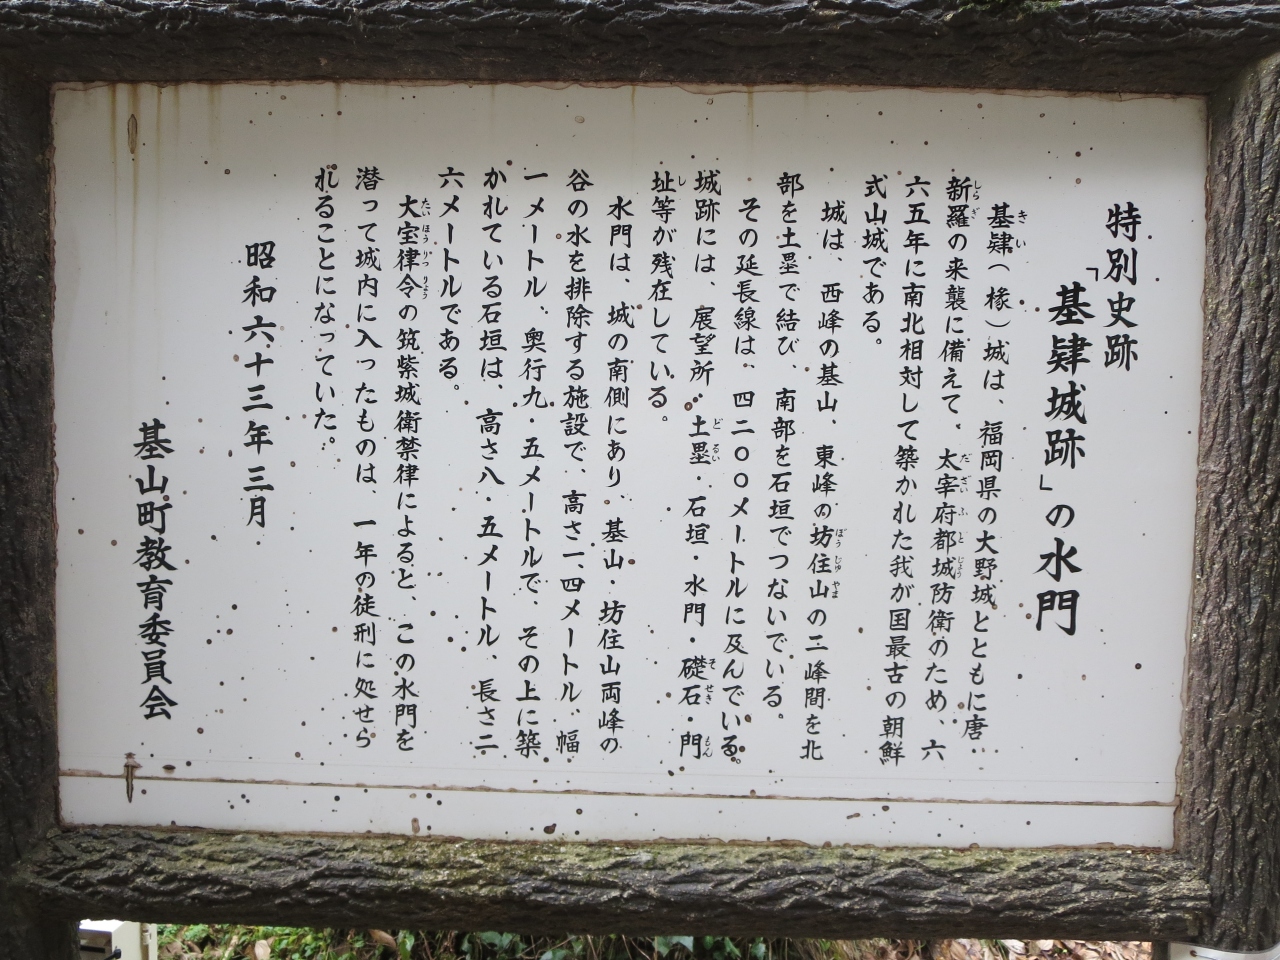 特別史跡
「基肄城跡」の水門
基肄(椽)城は、福岡県の大野城とともに唐・
新羅の来襲に備えて、太宰府都城防衛のため、六
六五年に南北相対して築かれた我が国最古の朝鮮
式山城である。
城は、西峰の基山、東峰の坊住山の二峰間を北
部を土塁で結び、南部を石垣でつないでいる。
その延長線は、四二〇〇メートルに及んでいる。
城跡には、展望所・土塁・石垣・水門・礎石・門
址等が残在している。
水門は、城の南側にあり、基山・坊住山両峰の
谷の水を排除する施設で、高さ一、四メートル、幅
一メートル、奥行九・五メートルで、その上に築
かれている石垣は、高さ八・五メートル、長さ二
六メートルである。
大宝律令の筑紫城衛禁律によると、この水門を
潜って城内に入ったものは、一年の徒刑に処せら
れることになっていた。
昭和六十三年三月
基山町教育委員会